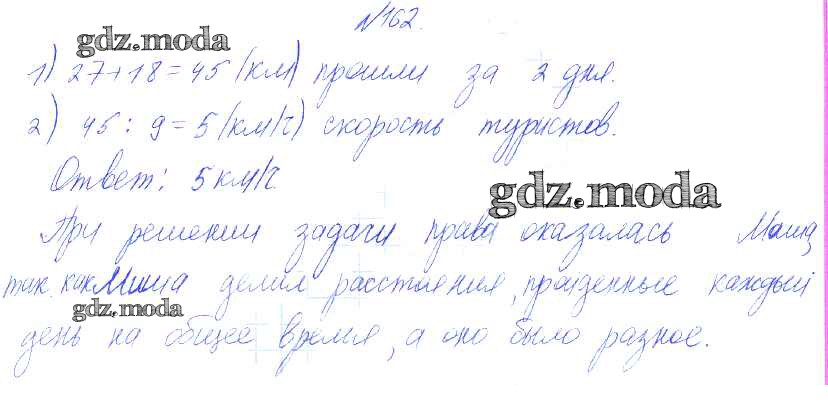 №162.
gdz.moda
1) 27+18=45 (км) прошли за 2 дня.
2) 45 : 9=5 (км/ч) скорость туристов.
Ответ: 5 км/ч
gdz.moda
При решении задачи права оказалась Маша,
так как Миша делил расстояния, пройденные каждый
gdz.moda
день на общее время, а оно было разное.